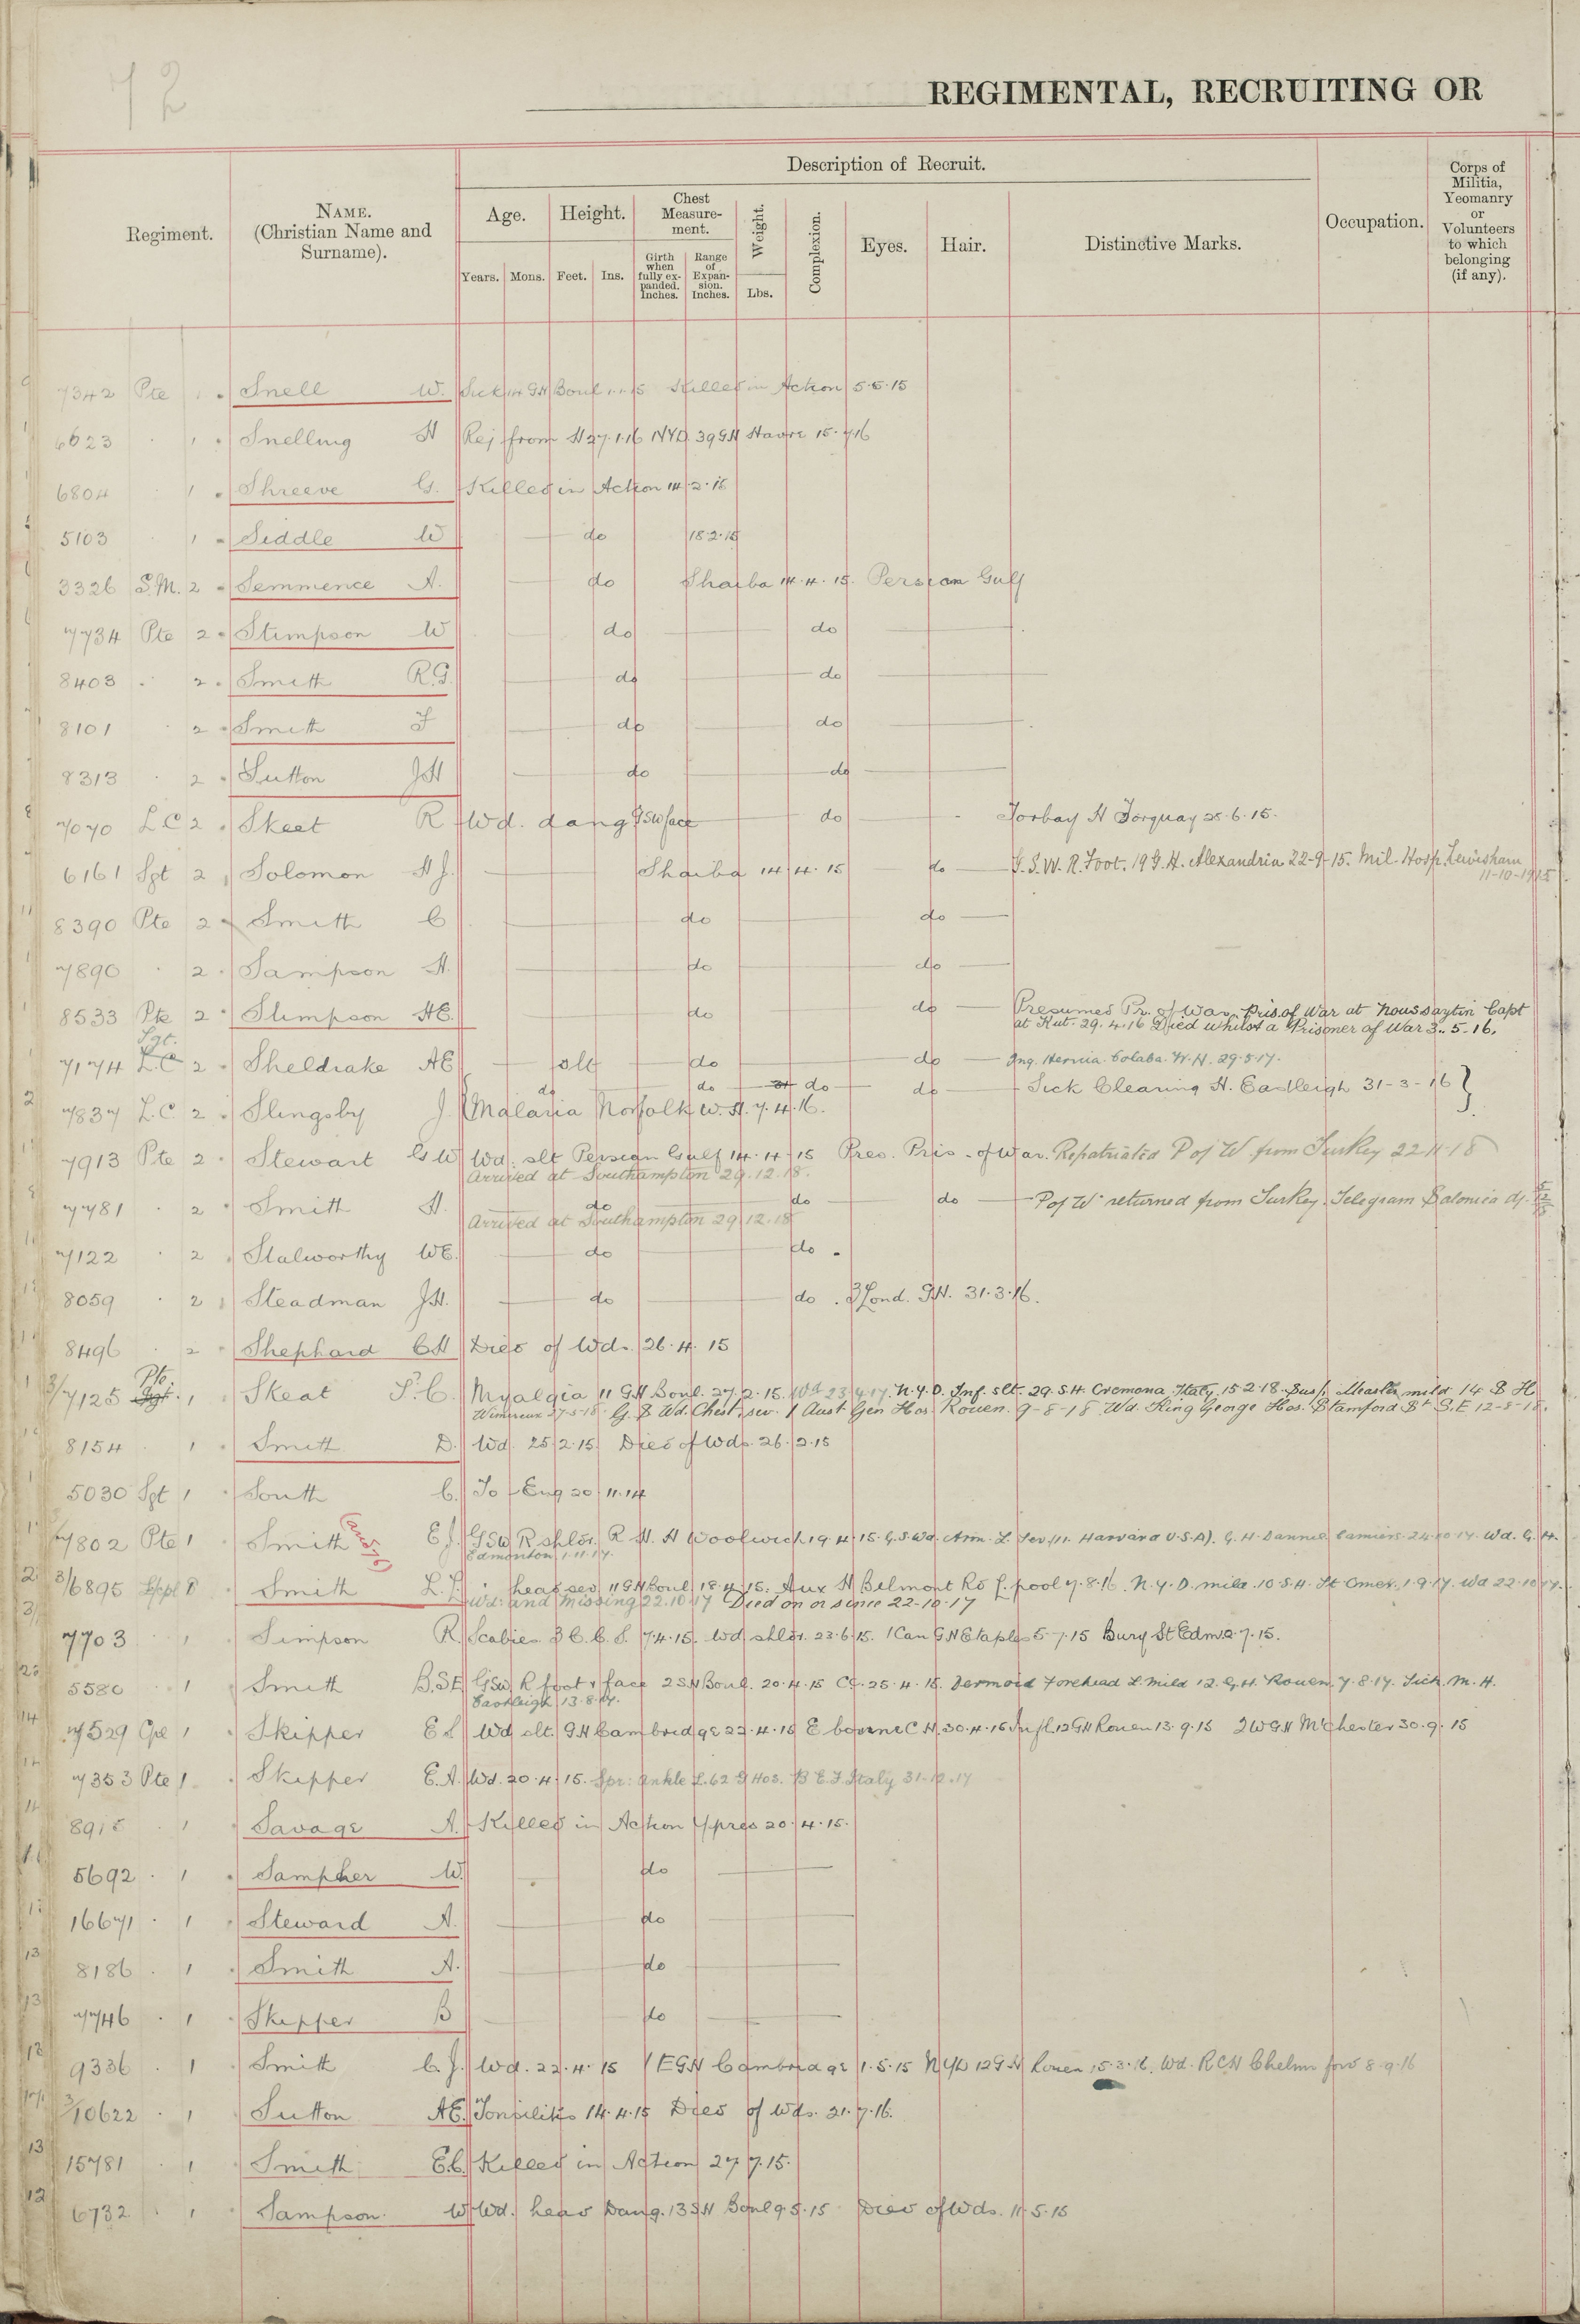 72
REGIMENTAL, RECRUITING OR
Regiment.
NAME.
(Christian Name and
Surname).
Description of Recruit.
Age.
Years. Mons.
Height.
Feet. Ins.
Chest
Measure-
ment.
Girth
when
fully ex-
panded.
Inches.
Range
of
Expan-
sion.
Inches.
Weight.
Lbs.
Complexion.
Eyes.
Hair.
Distinctive Marks.
Occupation.
Corps of
Militia,
Yeomanry
or
Volunteers
to which
belonging
(if any).
7342 Pte 1 Snell W. Sick 14 GH Boul 1.1.15 Killed in Action 5.5.15
6623 1 Snelling H Rej from H 27.1.16 NYD. 39 GH Havre 15.7.16
6804 1 Shreeve G. Killed in Action 14.2.15
5103 1 Siddle W do 15.2.15
3326 S.M. 2 Semmence A. do Shaiba 14.4.15. Persian Gulf
7734 Pte 2 Stimpson W do do
8403 2 Smith R.G. do do
8101 2 Smith F do do
8313 2 Sutton JH do do
7070 L.C 2 Skeet R Wd. dang GSW face do Torbay H Torquay 25.6.15.
6161 Sgt 2 Solomon H J. Shaiba 14.4.15 do G.S.W. R. Foot. 19 G.H. Alexandria 22-9-15. Mil. Hosp. Lewisham
11-10-1915
8390 Pte 2 Smith C do do
7890 2 Sampson H. do do
8533 Pte 2 Slimpson HE. do do Presumed Pr. of War. Pris. of War at Nousaytin Capt
at Kut. 29.4.16 Died whilst a Prisoner of War 3.5.16.
Sgt.
7174 L.C 2 Sheldrake AE slt do do Ing. Hernia. Colaba. W.H. 29.5.17.
do do do do Sick Clearing H. Eastleigh 31-3-16
7837 L.C. 2 Slingsby J. Malaria Norfolk W.H. 7.4.16.
7913 Pte 2 Stewart G W Wd. slt Persian Gulf 14.4.15 Pres. Pris. of War. Repatriated P of W from Turkey 22-11-18
Arrived at Southampton 29.12.18.
7781 2 Smith H. do do do P of W returned from Turkey. Telegram Salonica
Arrived at Southampton 29.12.18
7122 2 Stalworthy WE. do do
8059 2 Steadman JH. do do 3 Lond. G.H. 31.3.16.
8496 2 Shephard CH Died of Wds. 26.4.15
Pte.
3/7125 Sgt. 1 Skeat S.C. Myalgia 11 GH Boul. 27.2.15. Wd 23.4.17. N.Y.D. Inf. slt. 29. S.H. Cremona Italy 15 2.18. Sus/. Measles mild 14 S H
Wimereux 27-5-18 G.S Wd. Chest, sev. 1 Aust Gen Hos Rouen. 9-8-18 Wd. King George Hos. Stamford St S.E 12-8-18.
8154 1 Smith D. Wd. 25.2.15. Died of Wds. 26.2.15
5030 Sgt 1 South C. To Eng 20.11.14
7802 Pte 1 Smith E J. GSW R shldr. R H. H Woolwich 19.4.15. G.S.Wd. Arm. L Sev. (11. Harvard U.S.A). G.H. Dannes Camiers. 24.10.17. Wd. G.H.
Edmonton 1.11.17.
3/6895 1 Smith L.J. head sev. 11 GH Boul 18.4.15. Aux H Belmont Rd L.pool 7.8.16. N.Y.D. mild. 10.S.H. St Omer. 1.9.17. Wd 22.10.17.
Wd: and missing 22.10.17 Died on or since 22-10-17
7703 1 Simpson R. Scabies 3 C.C.S. 7.4.15. Wd shldr. 23.6.15. 1 Can G H Etaples 5-7.15 Bury St Edm. 2.7.15.
5580 1 Smith B.S.E GSW R foot & face 2 S H Boul. 20.4.15 CC. 25.4.15. Dermoid Forehead L mild 12. G.H. Rouen 7.8.17. Sick M.H.
Eastleigh 13.8.17.
7529 Cpl 1 Skipper E S Wd slt. GH Cambridge 22.4.15 E bourne C H. 30.4.15 Infl. 12 GH Rouen 13.9.15 2 W G H M'chester 30.9.15
7353 Pte 1 Skipper E.A. Wd. 20.4.15. Spr: ankle L. 62 G Hos. B E.F. Italy 31-12.17
8915 1 Savage A. Killed in Action Ypres 20.4.15.
5692 1 Sampher W. do
16671 1 Steward A. do
8186 1 Smith A. do
7746 1 Skipper B do
9336 1 Smith C.J. Wd. 22.4.15 1 E G H Cambridge 1.5.15 NYD 12 G H Rouen 15.3.16. Wd. R C H Chelm ford 8.9.16
3/10622 1 Sutton AE. Tonsilitis 14.4.15 Died of Wds. 21.7.16.
15781 1 Smith E.C. Killed in Action 27.7.15.
6732 1 Sampson. W Wd. head Dang. 13 S H Boul 9.5.15 Died of Wds. 11.5.15